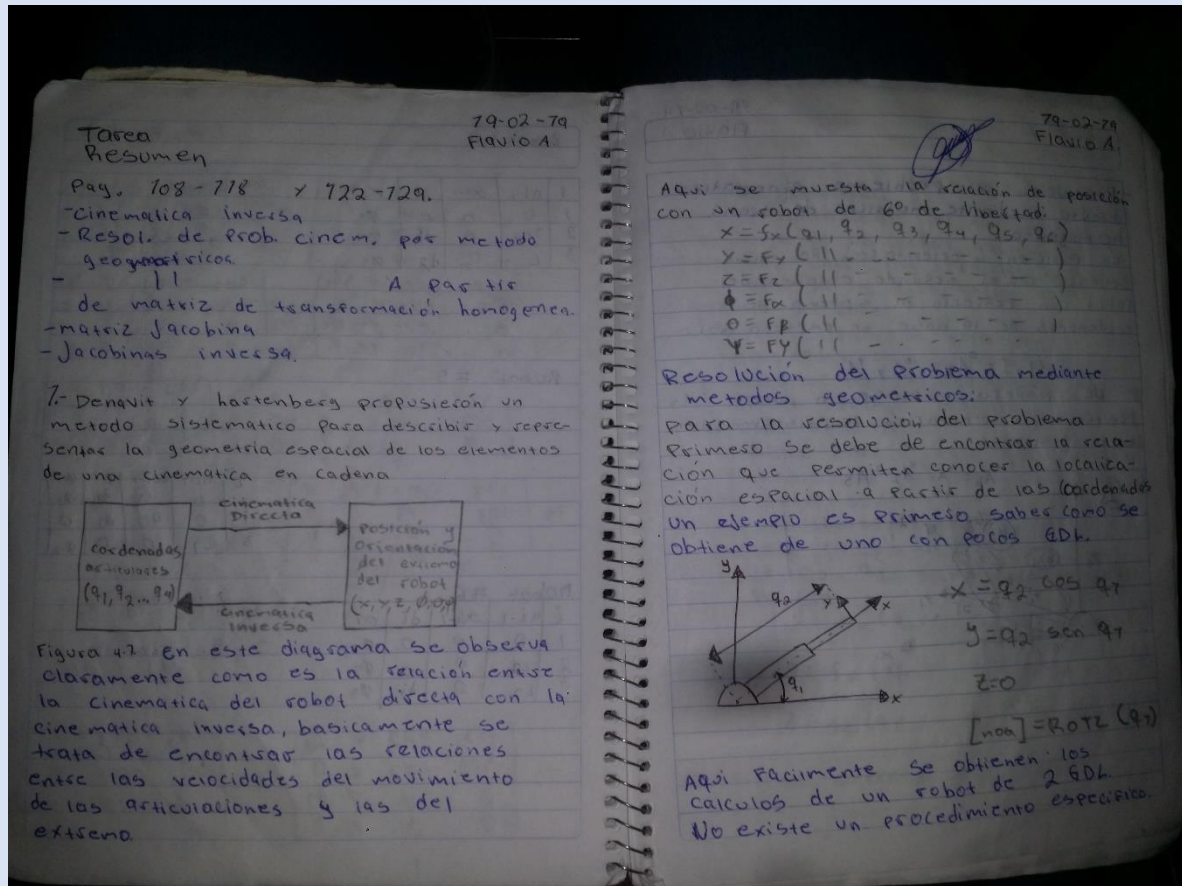 Tarea
Resumen
19-02-19
Flavio A.
Pag. 108-118 y 122-129.
-Cinematica inversa
-Resol. de Prob. cinem. por metodo
geometricos.
- || A partir
de matriz de transformación homogenea.
-matriz Jacobina
-Jacobinas inversa.
1.- Denavit y hartenberg propusierón un
metodo sistematico para describir y repre-
sentar la geometria espacial de los elementos
de una cinematica en cadena
cinematica
Directa
cordenadas
articulares
(q1, q2... qn)
Posición y
Orientación
del extremo
del robot
(x, y, z, ϕ, θ, ψ)
cinematica
inversa
Figura 4.1 en este diagrama se observa
claramente como es la relación entre
la cinematica del robot directa con la
cinematica inversa, basicamente se
trata de encontrar las relaciones
entre las velocidades del movimiento
de las articulaciones y las del
extremo.
19-02-19
Flavio A.
Aqui se muesta la relación de posición
con un robot de 6° de libertad:
X = fx(q1, q2, q3, q4, q5, q6)
Y = Fy ( || - - - - - - )
Z = Fz ( || - - - - - - )
ϕ = Fα ( || - - - - - - )
θ = Fβ ( || - - - - - - )
Ψ = Fγ ( || - - - - - - )
Resolución del Problema mediante
metodos geometricos:
para la resolución del problema
Primero se debe de encontrar la rela-
ción que permiten conocer la localica-
ción espacial a partir de las cordenadas
un ejemplo es primero saber como se
obtiene de uno con pocos GDL.
y
q2
y
x
q1
x
x = q2 cos q1
y = q2 sen q1
z=0
[noa] = ROTZ (q1)
Aqui Facilmente se obtienen los
calculos de un robot de 2 GDL
No existe un procedimiento especifico.